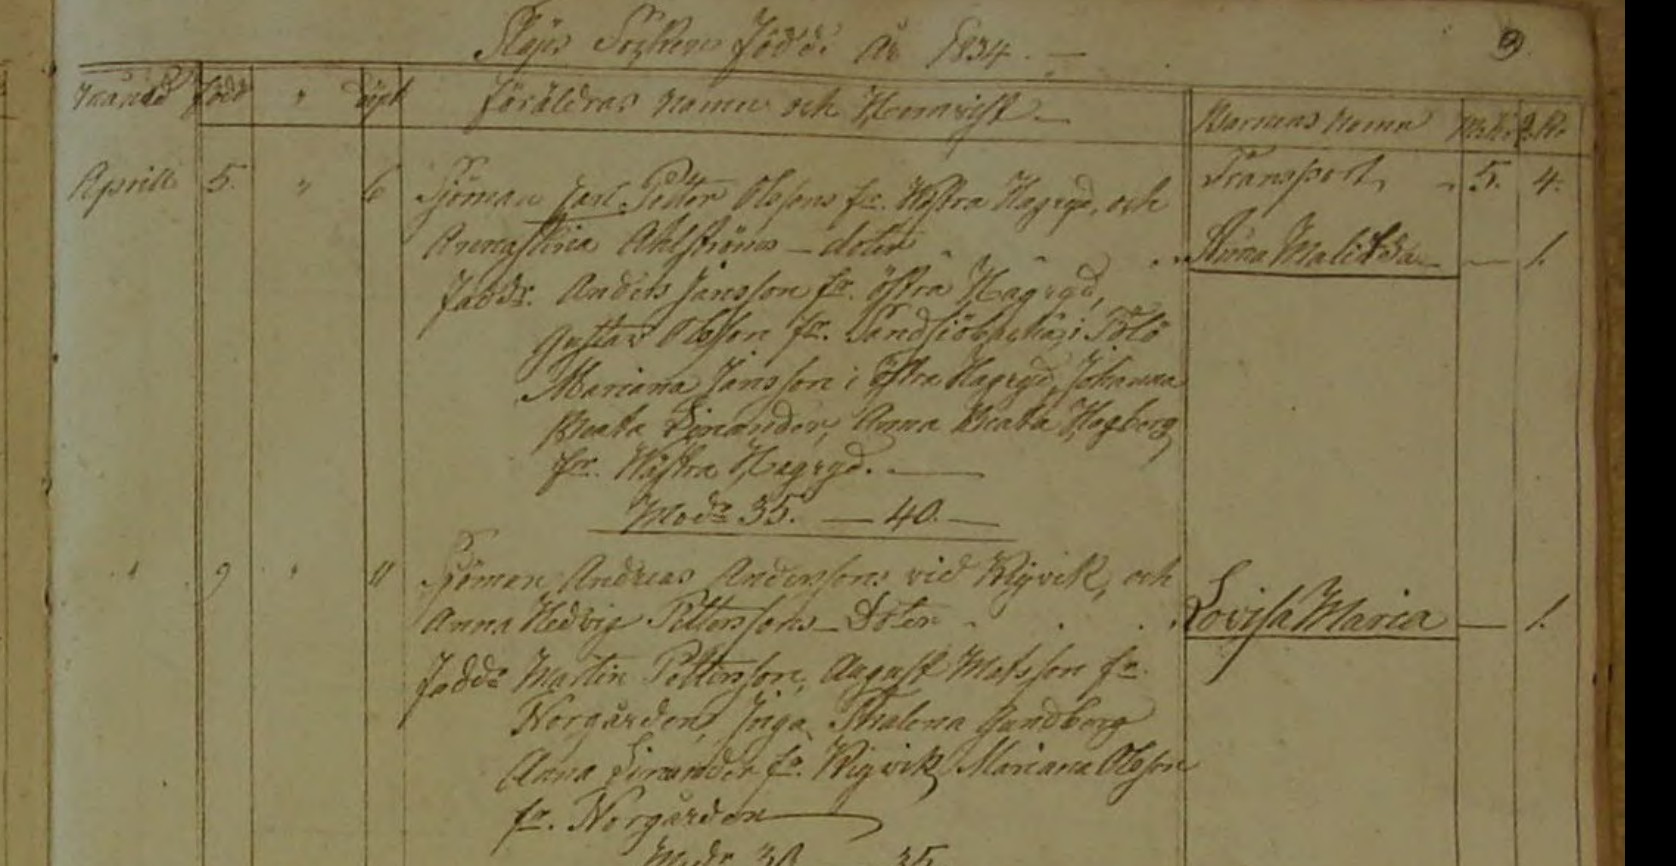 Släps Sockens Födde År 1834. —
9
Månad Född " döpt Föräldras namn och Hemvist — Barnens namn M.K. Q.K.
Transport 5. 4.
Aprill 5. " 6 Sjöman Carl Petter Olssons fr. Westra Hagryd, och
Annastina Ahlströms – doter Anna Mali — 1.
Faddr. Anders Jansson fr. östra Hagryd,
Gustav Olsson fr. i Tölö
Mariana Jansson i östra Hagryd, Johanna
Beata Linander, Anna Beata Hagberg
fr. Wästra Hagryd. —
Modr 35. — 40. —
" 9 " 11 Sjöman Andreas Anderssons vid Wigvik, och
Anna Hedvig Petterssons – Doter Lovisa Maria — 1.
Fadd: Martin Pettersson, August Matsson fr.
Norgården, Inga Thalena Sandberg
Anna Linander fr. Wigvik, Mariana Olsson
fr. Norgården —
Modr 38 35